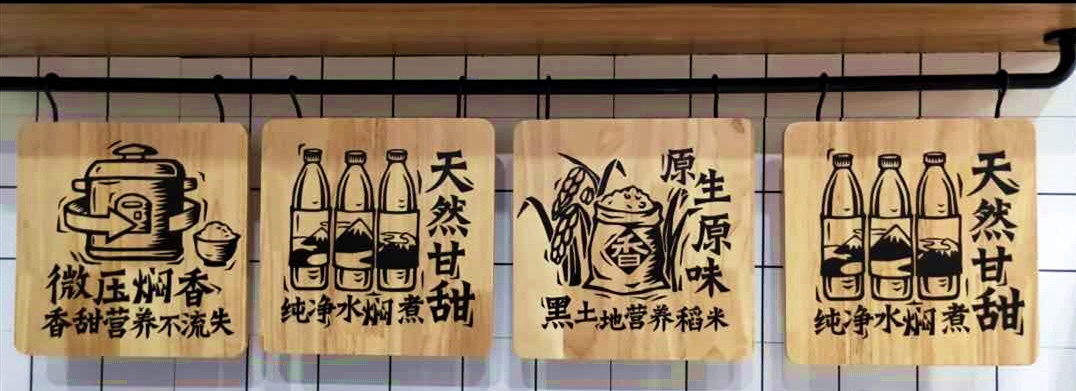 微压焖香
香甜营养不流失
天然甘甜
纯净水焖煮
原生原味
香
黑土地营养稻米
天然甘甜
纯净水焖煮